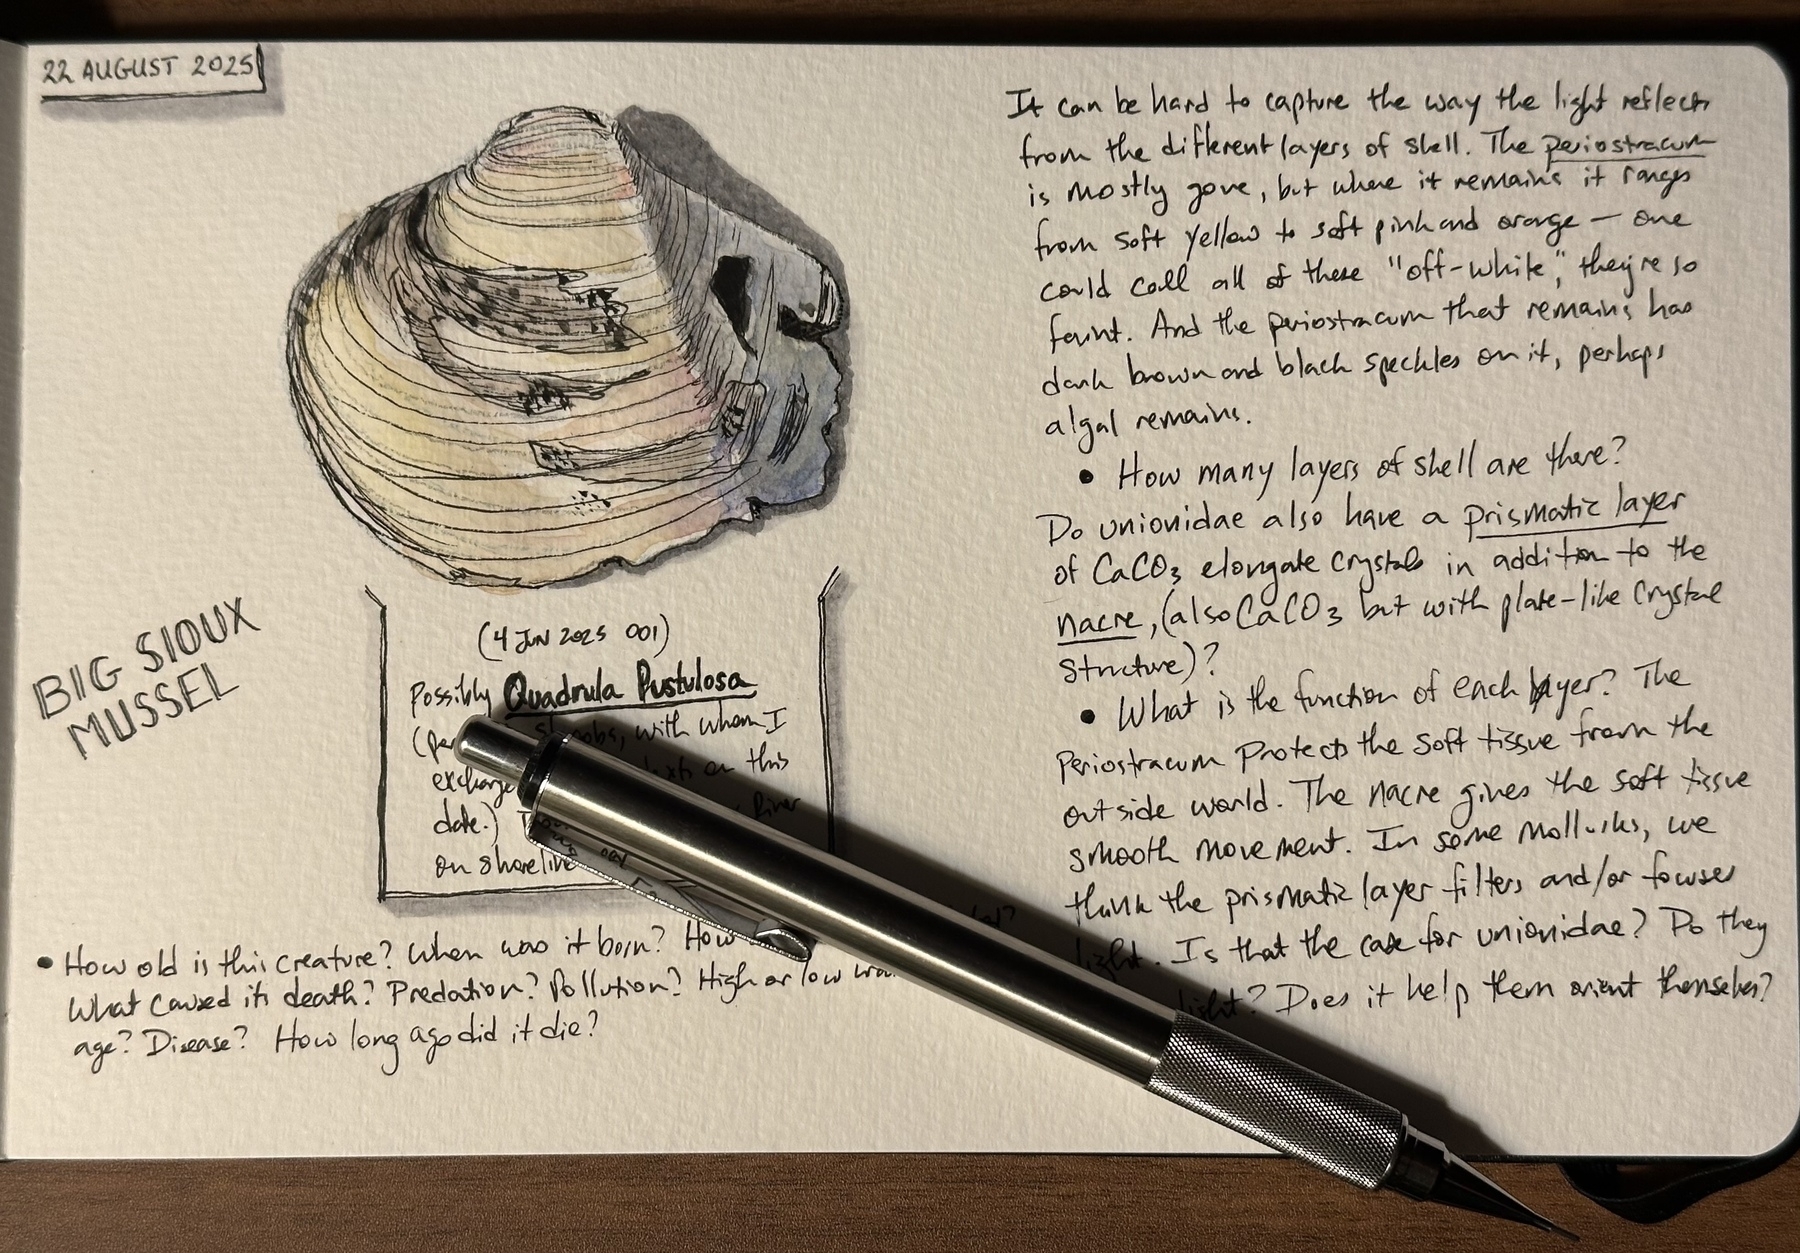 22 AUGUST 2025
BIG SIOUX
MUSSEL
(4 JUN 2025 001)
Possibly Quadrula Pustulosa
with whom I
on this
date.) River
on shoreline
• How old is this creature? When was it born? How
What caused its death? Predation? Pollution? High or low
age? Disease? How long ago did it die?
It can be hard to capture the way the light reflects
from the different layers of shell. The periostracum
is mostly gone, but where it remains it ranges
from soft yellow to soft pink and orange — one
could call all of these "off-white," they're so
faint. And the periostracum that remains has
dark brown and black speckles on it, perhaps
algal remains.
• How many layers of shell are there?
Do unionidae also have a prismatic layer
of CaCO3 elongate crystals in addition to the
nacre, (also CaCO3 but with plate-like crystal
structure)?
• What is the function of each layer? The
Periostracum protects the soft tissue from the
outside world. The nacre gives the soft tissue
smooth movement. In some mollusks, we
think the prismatic layer filters and/or focuses
light. Is that the case for unionidae? Do they
light? Does it help them orient themselves?